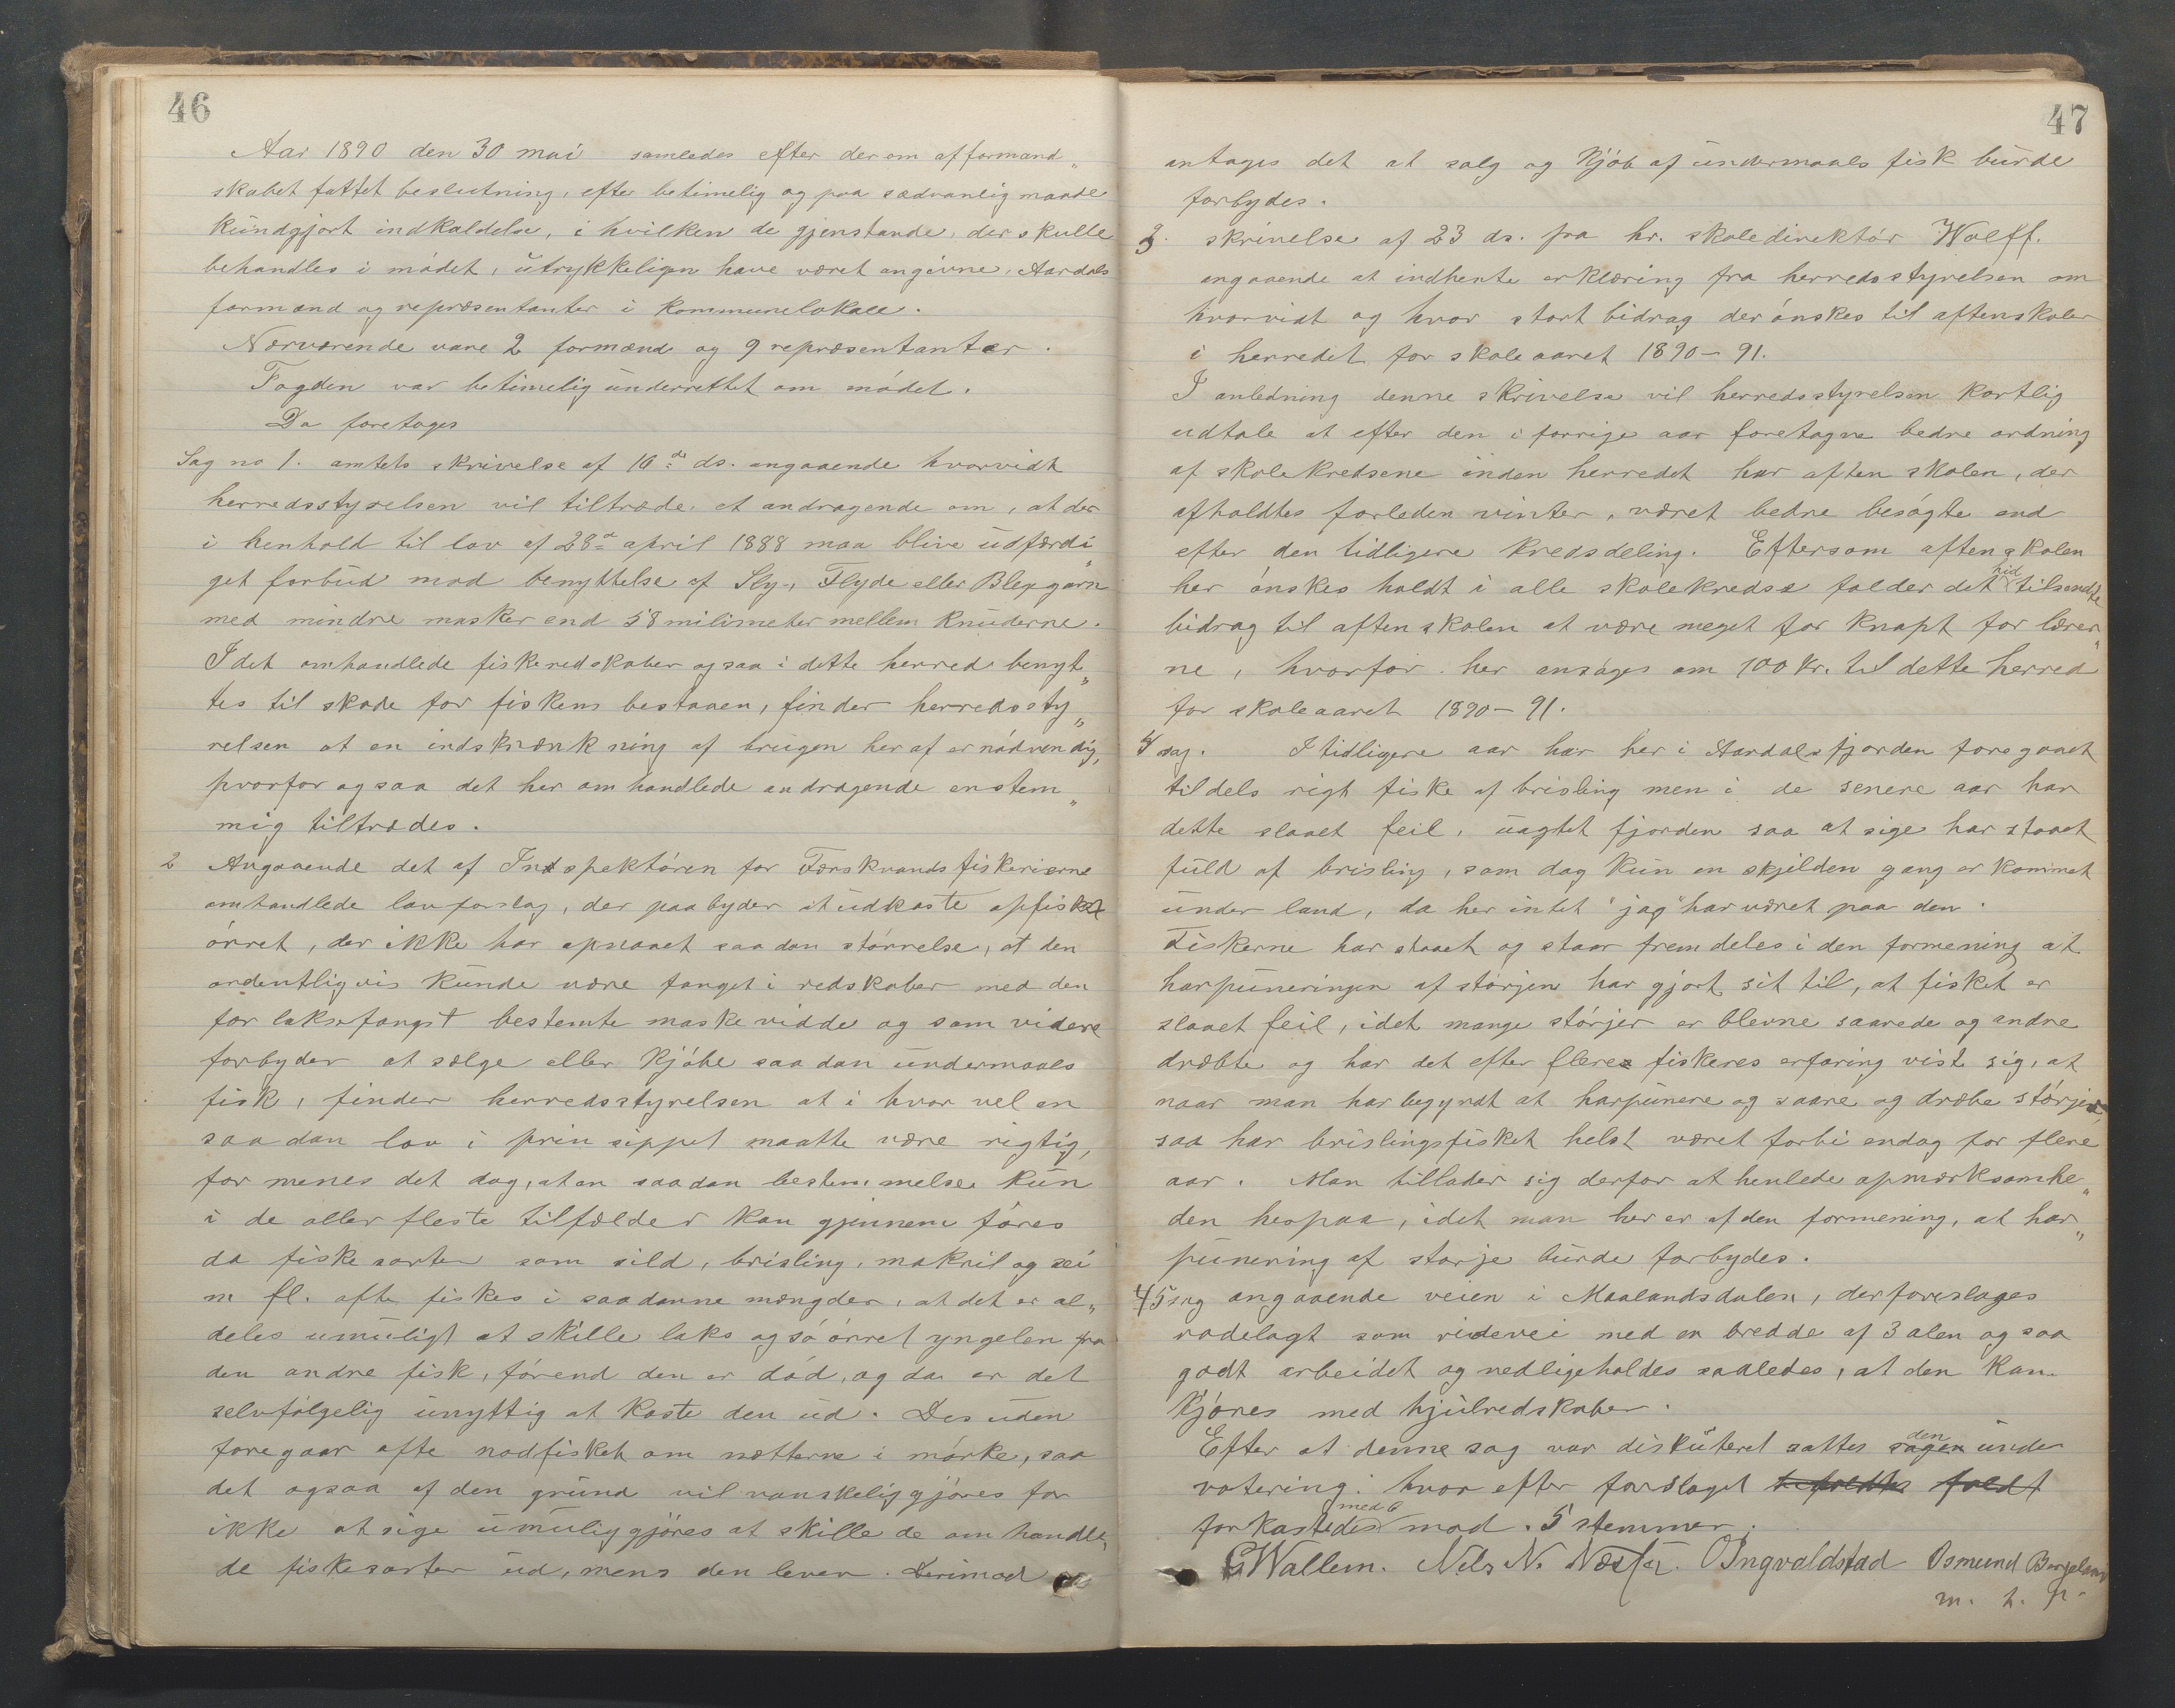 46
Aar 1890 den 30 mai samledes efter derom af formand„
skabet fattet beslutning, efter betimelig og paa sædvanlig maade
kundgjort indkaldelse, i hvilken de gjenstande, der skulle
behandles i mødet, utrykkeligen have været angivne, Aardals
formænd og repræsentanter i kommunelokale.
Nærværende vare 2 formænd og 9 repræsentanter.
Fogden var betimelig underrettet om mødet.
Da foretages
Sag no 1. amtets skrivelse af 16de ds. angaaende hvorvidt
herredsstyrelsen vil tiltræde et andragende om, at der
i henhold til lov af 28de april 1888 maa blive udfærdi„
get forbud mod benyttelse af Sly-, Flyde eller Blexgarn
med mindre masker end 58 milimeter mellem knuderne.
I det omhandlede fiskeredskaber ogsaa i dette herred benyt„
tes til skade for fiskens bestaaen, finder herredssty„
relsen at en indskrænkning af brugen heraf er nødvendig,
hvorfor ogsaa det her omhandlede andragende enstem„
mig tiltrædes.
2 Angaaende det af Indspektøren for Færskvandsfiskerierne
omhandlede lovforslag, der paabyder at udkaste opfisket
ørret, der ikke har opnaaet saadan størrelse, at den
ordentligvis kunde være fanget i redskaber med den
for laksefangst bestemte maskevidde og som videre
forbyder at sælge eller kjøbe saadan undermaals
fisk, finder herredsstyrelsen at i hvor vel en
saadan lov i prinsippet maatte være rigtig,
formenes det dog, at en saadan bestemmelse kun
i de allerfleste tilfælder kan gjennemføres
da fiskesorter som sild, brisling, makril og sei
m fl. ofte fiskes i saadanne mængder, at det er al„
deles umuligt at skille laks og søørret yngelen fra
den andre fisk, førend den er død, og da er det
selvfølgelig unyttig at kaste den ud. Desuden
foregaar ofte nodfisket om nætterne i mørke, saa
det ogsaa af den grund vil vanskeliggjøres for
ikke at sige umuliggjøres at skille de omhandle„
de fiskesorter ud, mens den lever. Derimod
47
antages det at salg og kjøb af undermaals fisk burde
forbydes.
3. skrivelse af 23 ds. fra hr. skoledirektør Wolff.
angaaende at indhente erklæring fra herredsstyrelsen om
hvorvidt og hvor stort bidrag der ønskes til aftenskoler
i herredet for skoleaaret 1890–91.
I anledning denne skrivelse vil herredsstyrelsen kortlig
udtale at efter den i forrige aar foretagne bedre ordning
af skolekredsene inden herredet har aftenskolen, der
afholdtes forleden vinter, været bedre besøgte end
efter den tidligere kredsdeling. Eftersom aftenskolen
her ønskes holdt i alle skolekredse falder det hid tilsendte
bidrag til aftenskolen at være meget for knapt for lærer„
ne, hvorfor her ansøges om 100 kr. til dette herred
for skoleaaret 1890–91.
4 sag. I tidligere aar har her i Aardalsfjorden foregaaet
tildels rigt fiske af brisling men i de senere aar har
dette slaaet feil, uagtet fjorden saa at sige har staaet
fuld af brisling, som dog kun en skjelden gang er kommet
under land, da her intet "jag" har været paa den.
Fiskerne har staaet og staar fremdeles i den formening at
harpuneringen af størjen har gjort sit til, at fisket er
slaaet feil, idet mange størjer er blevne saarede og andre
dræbte og har det efter flere fiskeres erfaring vist sig, at
naar man har begyndt at harpunere og saare og dræbe størjen,
saa har brislingsfisket helst været forbi endog for flere
aar. Man tillader sig derfor at henlede opmærksomhe„
den hespaa, idet man her er af den formening, at har„
punering af størje burde forbydes.
5 sag angaaende veien i Maalandsdalen, der foreslages
rodelagt som ridevei med en bredde af 3 alen og saa
godt arbeidet og vedligeholdes saaledes, at den kan
kjøres med hjulredskaber.
Efter at denne sag var diskuteret sattes den under
votering. hvorefter forslaget
forkastedes med 6 mod 5 stemmer.
G Wallem. Nils N. O Ingvaldstad Osmund Bergeland
m. h. p.